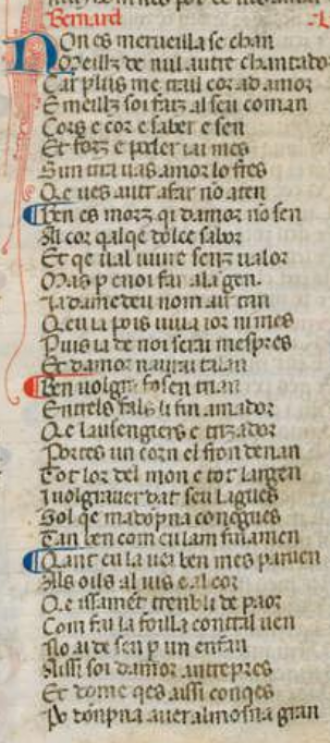 Bernard
Non es merueilla se chan
Meilz de nul autre chantador
Car plus me trai l cor ad amor
E meillz soi faiz al seu coman
Cors e cor e saber e sen
Et forz e poder iai mes
Sim tira uas amor lo fres
Qe ues autr afar no aten
Ben es morz qi damor no sen
Al cor qalqe dolce sabor
Et qe ual uiure senz ualor
Mas p enoi far ala gen
Ia dame deu nom air tan
Qeu ia pois uiua ior ni mes
Puis ia de noi serai mespres
Et damor naurai talan
Ben uolgra fosen trian
Entrels fals li fin amador
Qe lausengiers e trizador
Portes un corn el fron denan
Tot lor del mon e tot largen
I uolgrauer dat seu lagues
Sol qe madopna conogues
Tan ben com eu lam finamen
Qant eu la uei ben mes paruen
Als oils al uis e al cor
Qe issamet trenbli de paor
Com fai la foilla contral uen
No ai de sen p un enfan
Aissi soi damor antrepres
Et dome qes aissi conqes
Po dopna auer almosna gran